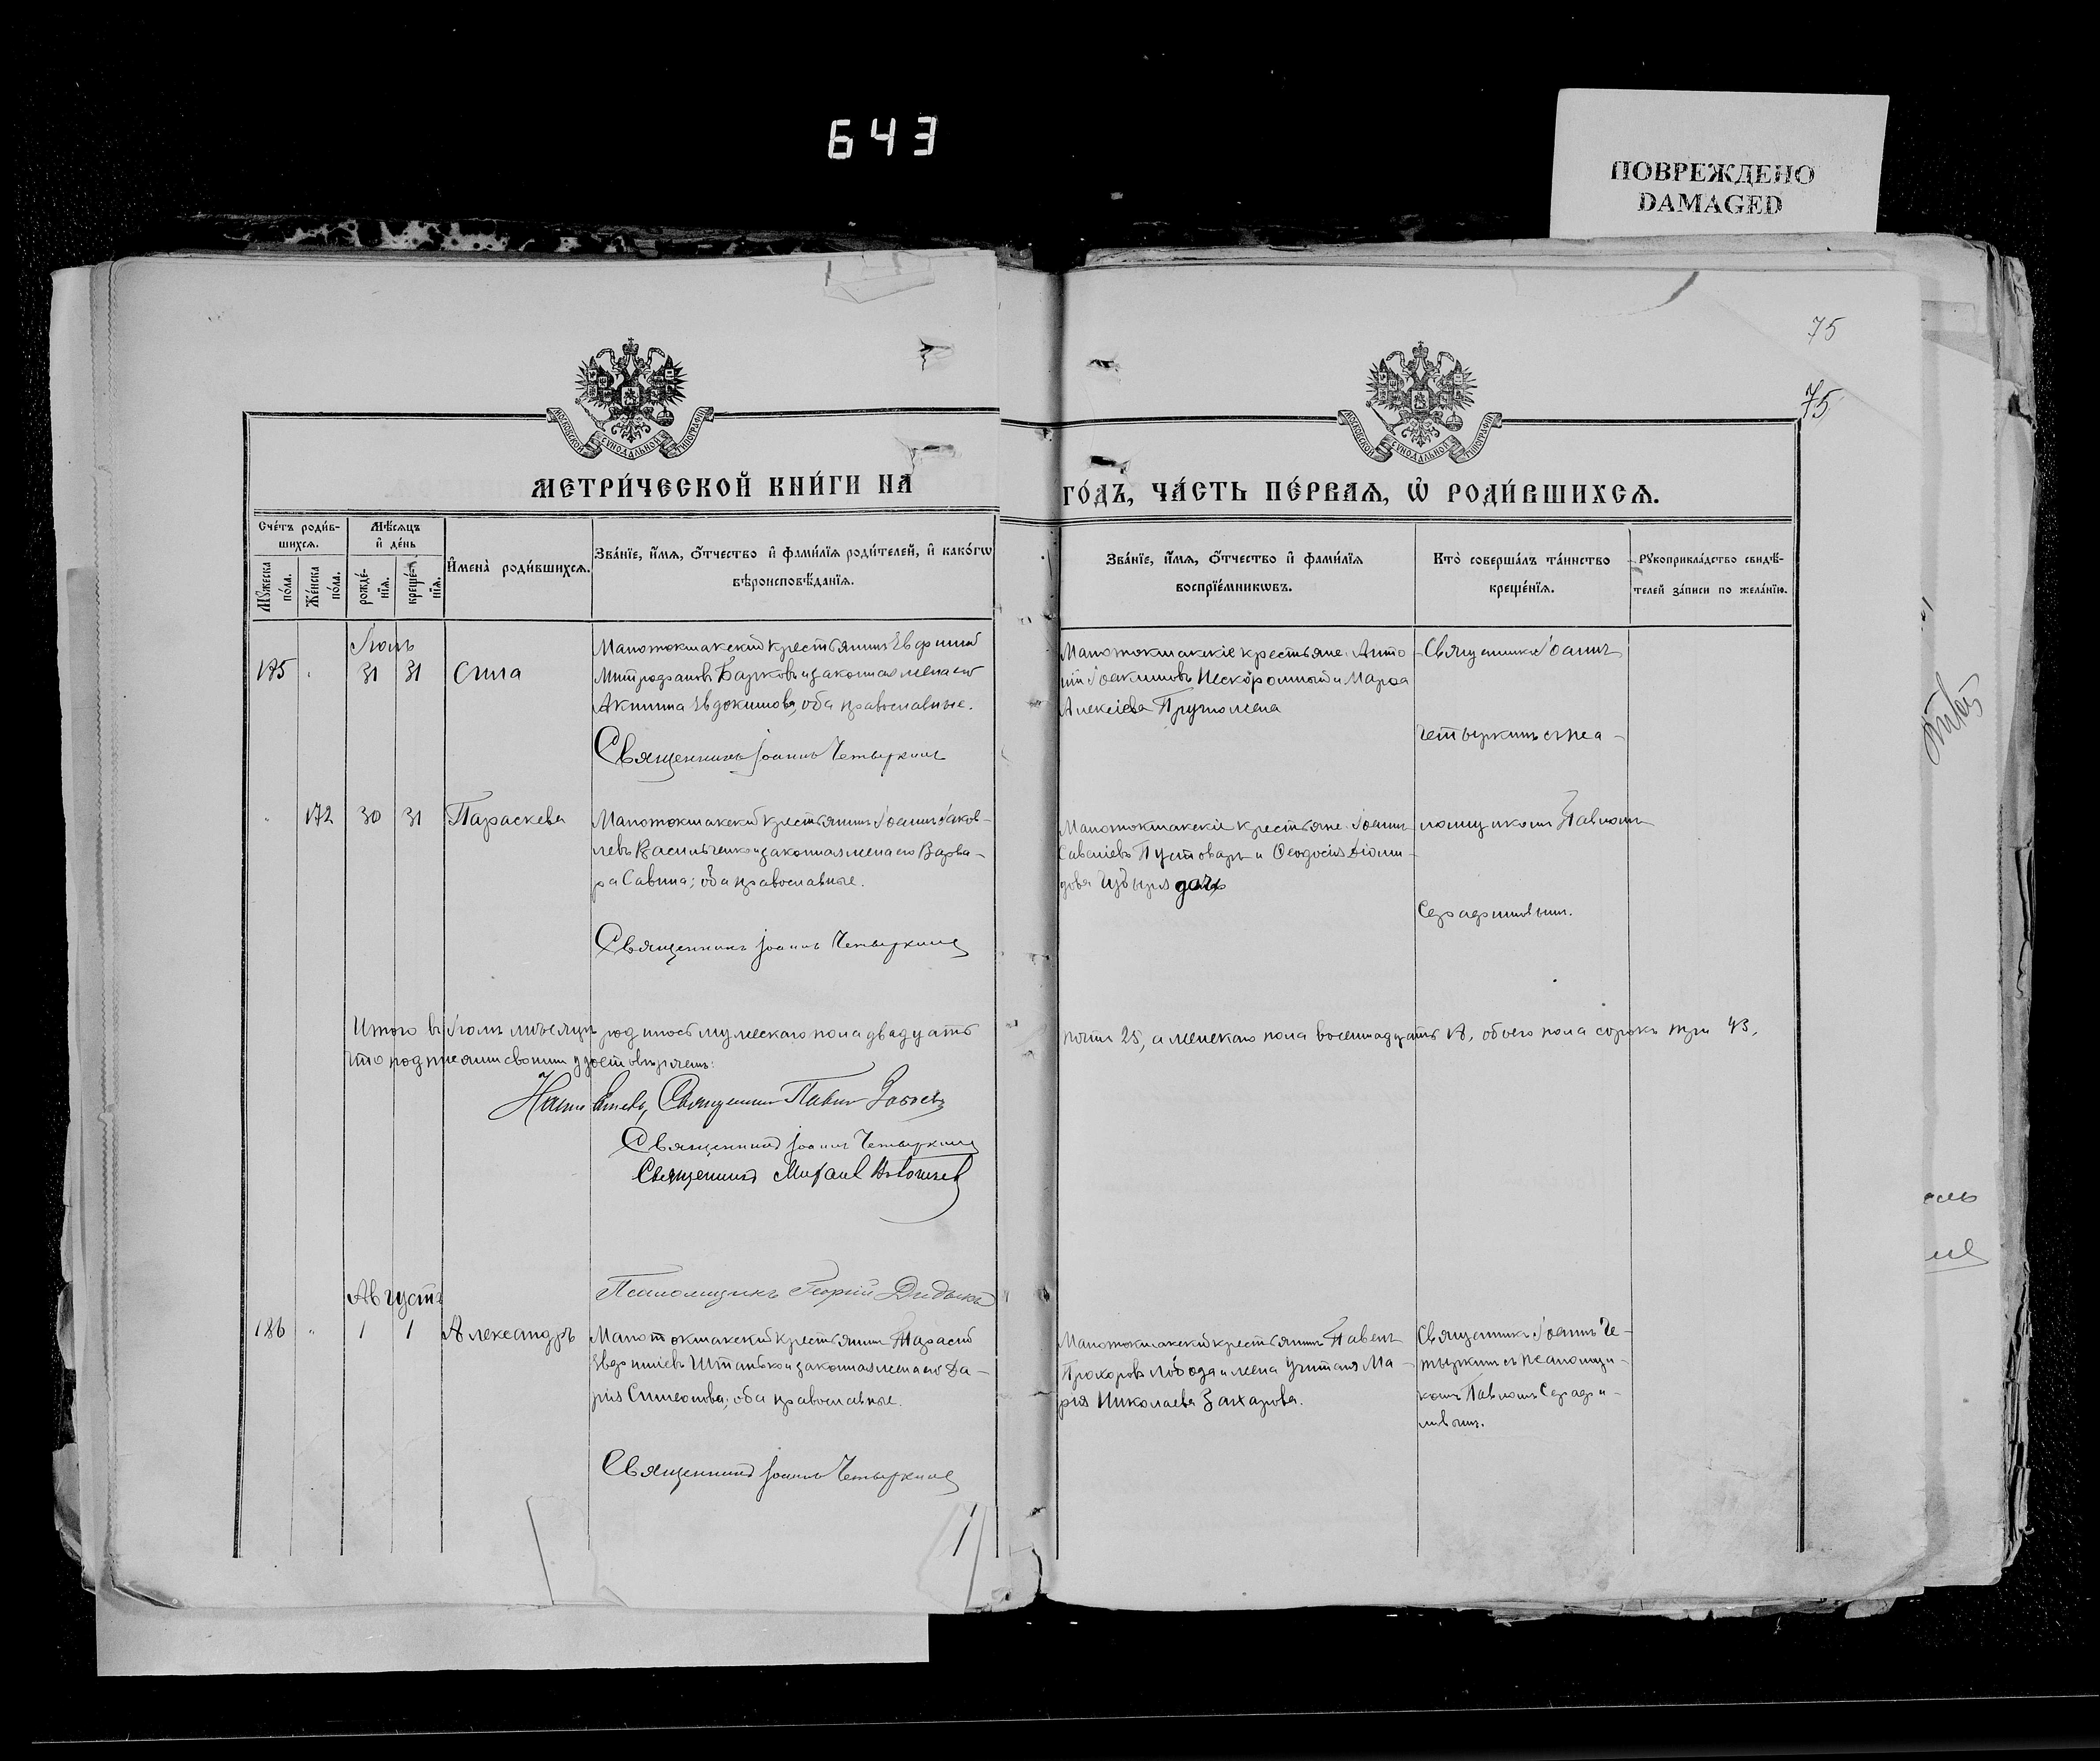 643
ПОВРЕЖДЕНО
DAMAGED
75
75
МОСКОВСКОЙ СѴНОДАЛЬНОЙ ТИПОГРАФІИ
МОСКОВСКОЙ СѴНОДАЛЬНОЙ ТИПОГРАФІИ
МЕТРИ́ЧЕСКОЙ КНИ́ГИ НА ГО́ДЪ, ЧА́СТЬ ПЕ́РВАЯ, Ѡ РОДИ́ВШИХСЯ.
Сче́тъ роди́в-
шихся.
Му́жеска по́ла.
Же́нска по́ла.
Мѣ́сяцъ
и де́нь
рожде́-
нїя.
креще́-
нїя.
Имена̀ роди́вшихся.
Зва́нїе, и́мя, о́тчество и фами́лїя роди́телей, и како́гѡ
вѣроисповѣ́данїя.
Зва́нїе, и́мя, о́тчество и фами́лїя
воспрїе́мникѡвъ.
Кто̀ соверша́лъ та́инство
креще́нїя.
Рꙋкоприкла́дство свидѣ́-
телей за́писи по жела́нїю.
Іюль
175 " 31 31 Сила
Малотокмакский крестьянинъ Евфимий
Митрофановъ Барковъ и законная жена его
Акилина Евдокимова, оба православные.
Священникъ Іоаннъ Четыркинъ
Малотокмакскіе крестьяне: Анто-
ній Іоакимовъ Нескоромный и Марѳа
Алексіева Пругло жена
Священникъ Іоаннъ
Четыркинъ съ пса-
" 172 30 31 Параскева
Малотокмакский крестьянинъ Іоаннъ Іаков-
левъ Васильченко и законная жена его Варва-
ра Савина; оба православные.
Священникъ Іоаннъ Четыркинъ
Малотокмакскіе крестьяне: Іоаннъ
Савеліевъ Пустоваръ и Ѳеодосія Діоми-
дова Цыбуля дочь
ломщикомъ Павломъ
Серафимовымъ.
Итого въ Іюлѣ мѣсяцѣ родилось мужескаго пола двадцать
пять 25, а женскаго пола восемнадцать 18, обоего пола сорокъ три 43.
Что подписями своими удостовѣряемъ:
Священникъ Павелъ
Священникъ Іоаннъ Четыркинъ
Священникъ Михаилъ
Псаломщикъ Георгій Дидыкъ
Августъ
186 " 1 1 Александръ
Малотокмакский крестьянинъ Тарасий
Евфиміевъ Штанько и законная жена его Да-
рія Симеонова; оба православные.
Священникъ Іоаннъ Четыркинъ
Малотокмакский крестьянинъ Павелъ
Прохоровъ Лобода и жена учителя Ма-
рія Николаева Захарова.
Священникъ Іоаннъ Че-
тыркинъ съ псаломщи-
комъ Павломъ Серафи-
мовымъ.